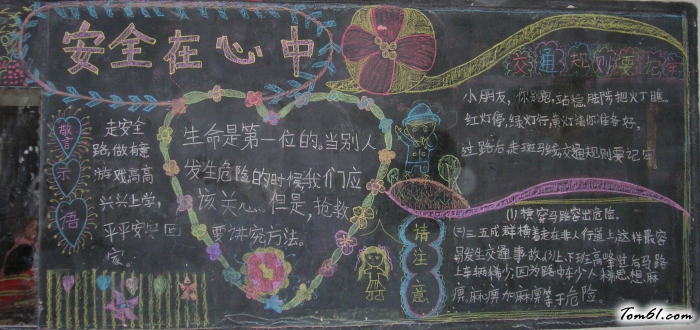 安全在心中
交通规则要记牢
警示语
走安全
路,做有意
游戏高高
兴兴上学,
平平安安回
家。
生命是第一位的。当别人
发生危险的时候我们应
该关心。但是,抢救
要讲究方法。
小朋友,你别跑,站稳脚步把灯瞧。
红灯停,绿灯行,黄灯请你准备好。
过路口,走斑马线,交通规则要记牢
请注意
(1)横穿马路容出危险。
(2)三五成群横着走在非人行道上,这样最容
易发生交通事故(3)上、下班高峰过后马路
上车辆稀少因为路中车少人稀思想麻
痹,麻痹加麻痹等于危险。
Tom61.com